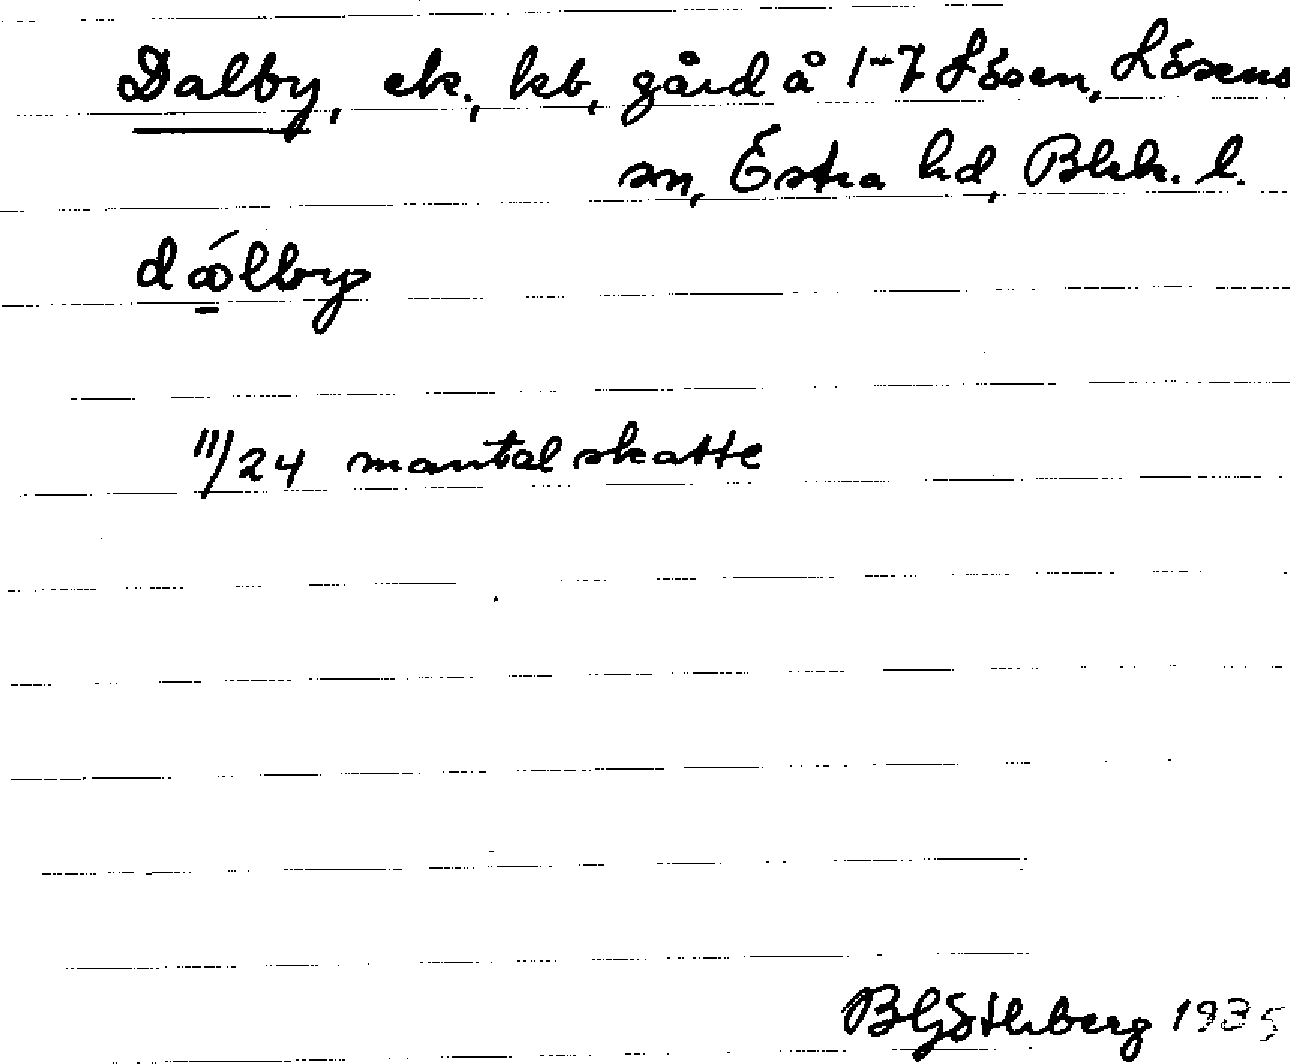 Dalby, ek., kb, gård å 1-7 Lösen, Lösens
sn, Östra hd, Blek. l.
dálby
11/24 mantal skatte
B Göthberg 1935